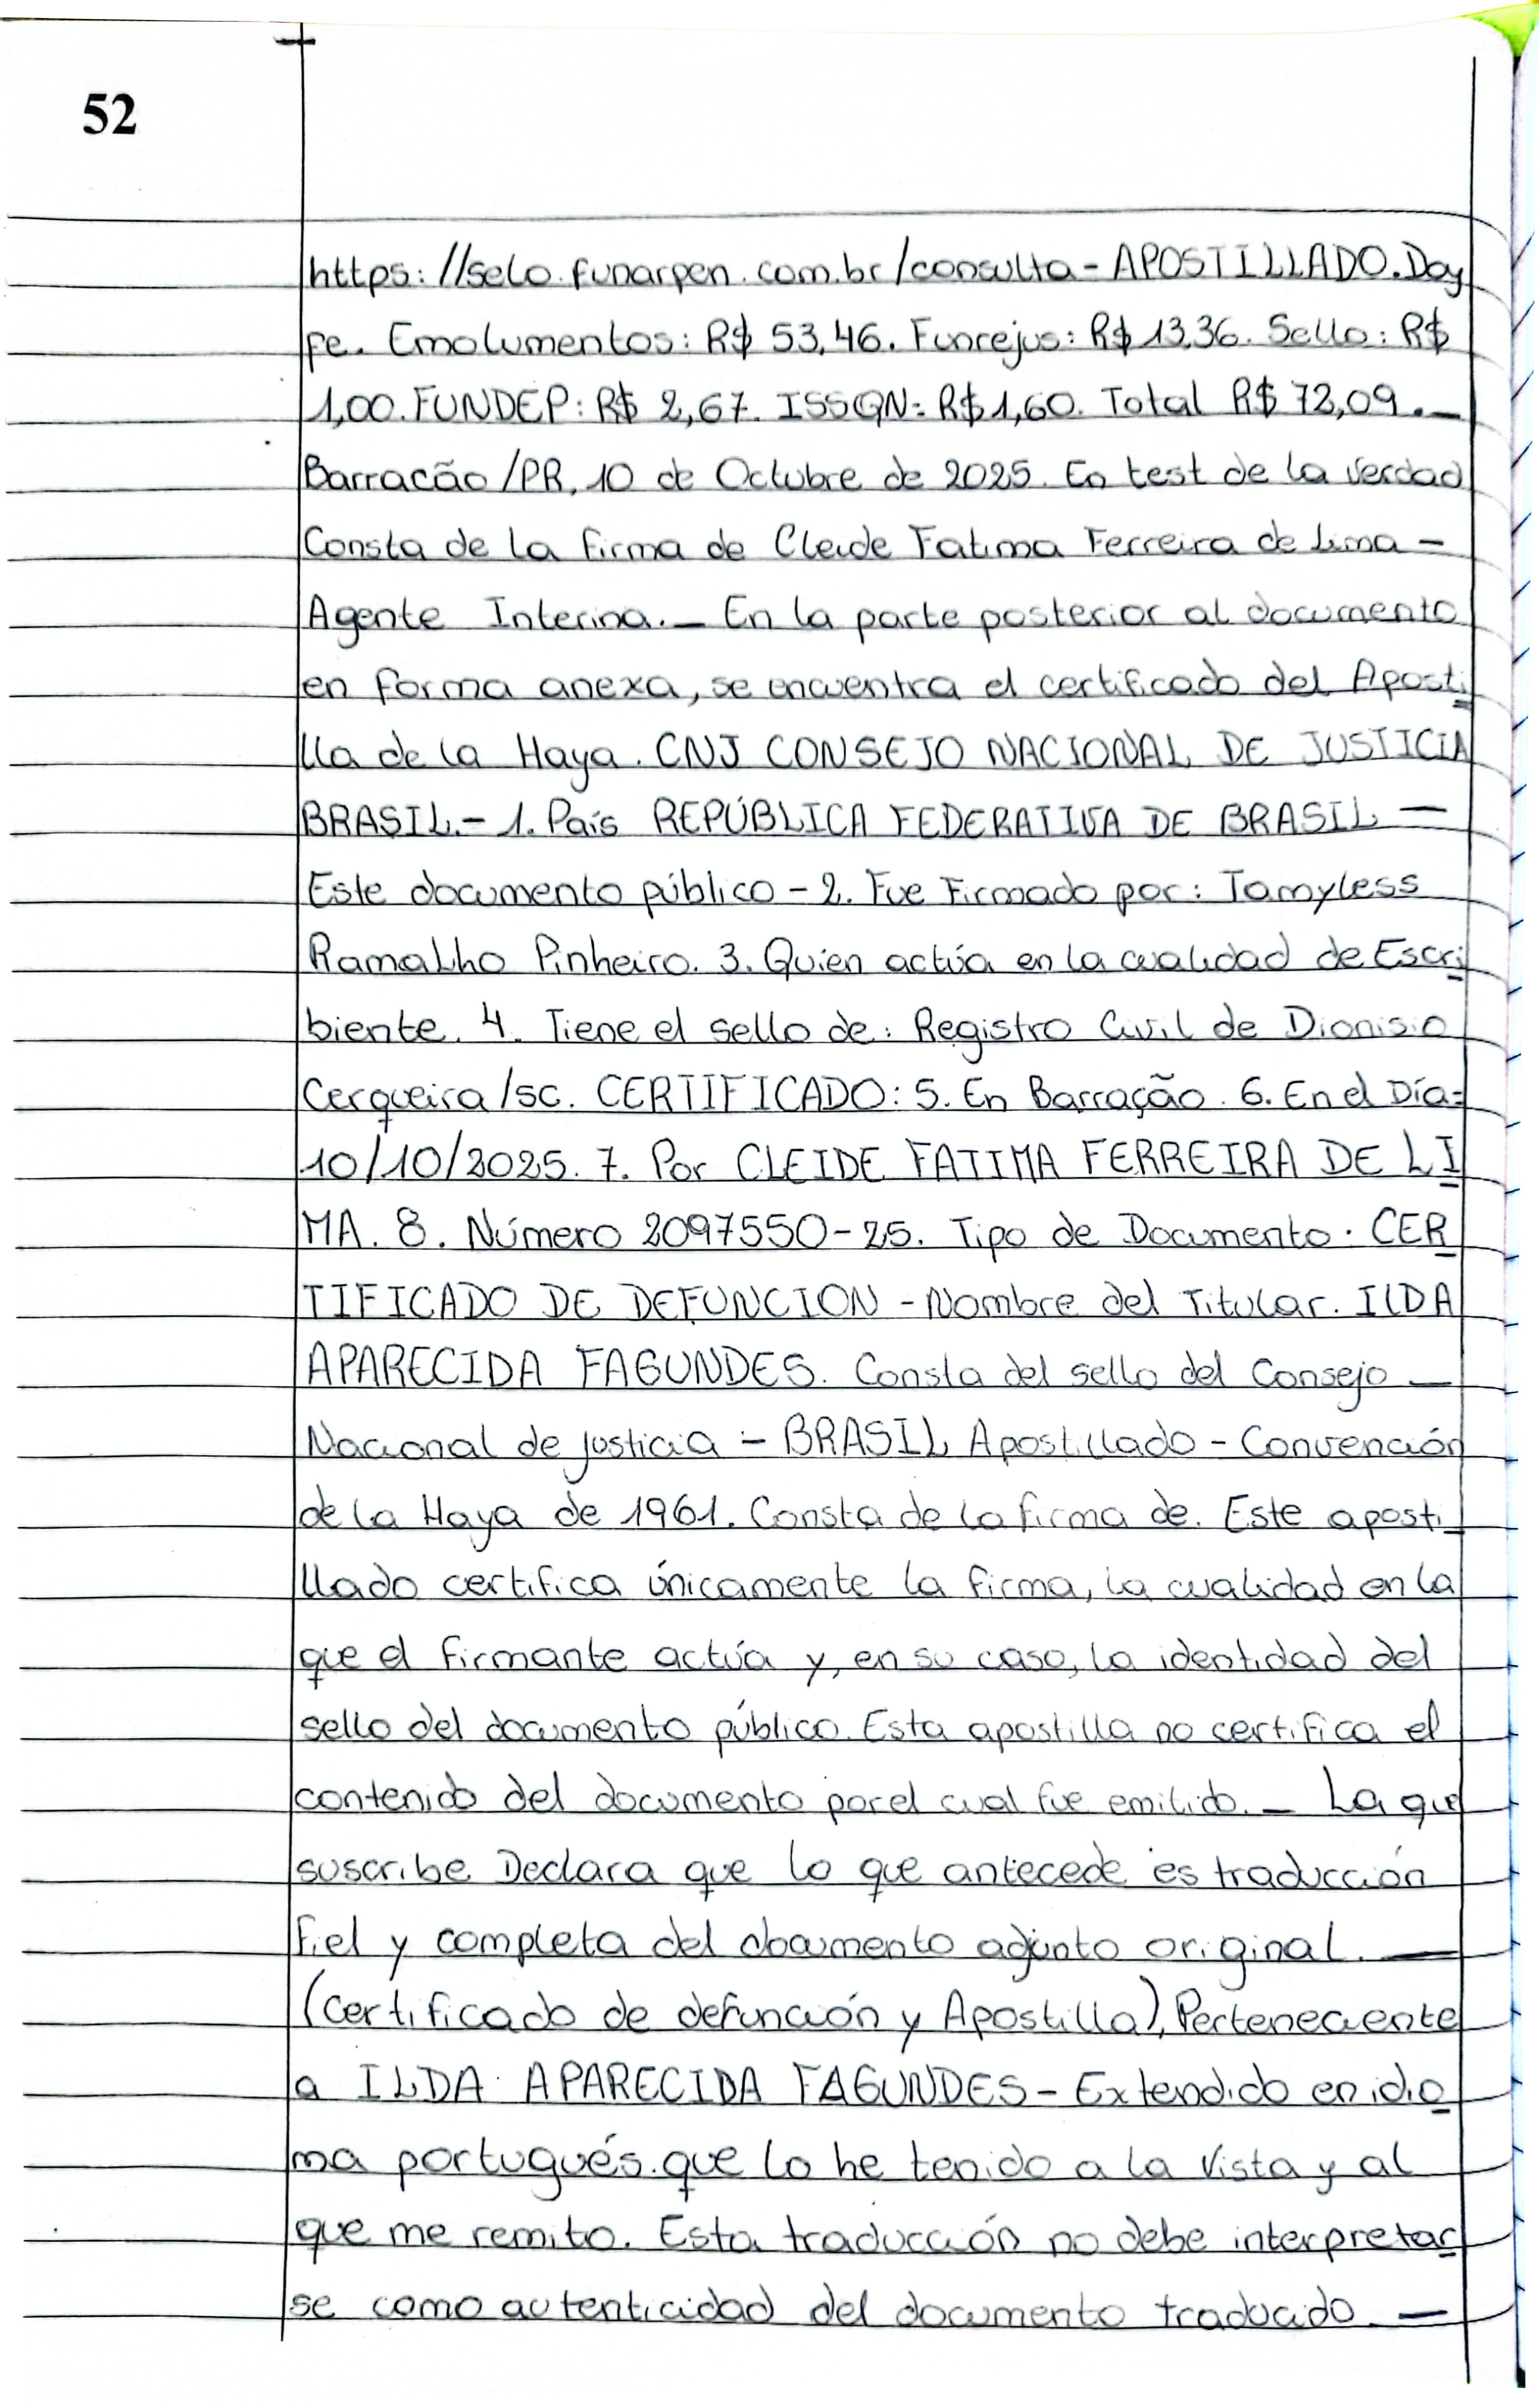 52
https://selo.funarpen.com.br/consulta - APOSTILLADO. Doy
fe. Emolumentos: R$ 53,46. Funrejus: R$ 13,36. Sello: R$
1,00. FUNDEP: R$ 2,67. ISSQN: R$ 1,60. Total R$ 72,09._
Barracão/PR, 10 de Octubre de 2025. En test de la verdad
Consta de la firma de Cleide Fatima Ferreira de Lima -
Agente Interina._ En la parte posterior al documento
en forma anexa, se encuentra el certificado del Aposti
lla de la Haya. CNJ CONSEJO NACIONAL DE JUSTICIA
BRASIL.- 1. País REPÚBLICA FEDERATIVA DE BRASIL —
Este documento público - 2. Fue Firmado por: Tamyless
Ramalho Pinheiro. 3. Quien actúa en la cualidad de Escri
biente. 4. Tiene el sello de: Registro Civil de Dionisio
Cerqueira/sc. CERTIFICADO: 5. En Barração. 6. En el Día:
10/10/2025. 7. Por CLEIDE FATIMA FERREIRA DE LI
MA. 8. Número 2097550-25. Tipo de Documento. CER
TIFICADO DE DEFUNCION - Nombre del Titular. ILDA
APARECIDA FAGUNDES. Consta del sello del Consejo _
Nacional de justicia - BRASIL Apostillado - Convención
de la Haya de 1961. Consta de la firma de. Este aposti
llado certifica únicamente la firma, la cualidad en la
que el firmante actúa y, en su caso, la identidad del
sello del documento público. Esta apostilla no certifica el
contenido del documento por el cual fue emitido._ La que
suscribe Declara que lo que antecede es traducción
fiel y completa del documento adjunto original. —
(certificado de defunción y Apostilla), Perteneciente
a ILDA APARECIDA FAGUNDES - Extendido en idio
ma portugués. que lo he tenido a la vista y al
que me remito. Esta traducción no debe interpretar
se como autenticidad del documento traducido. —